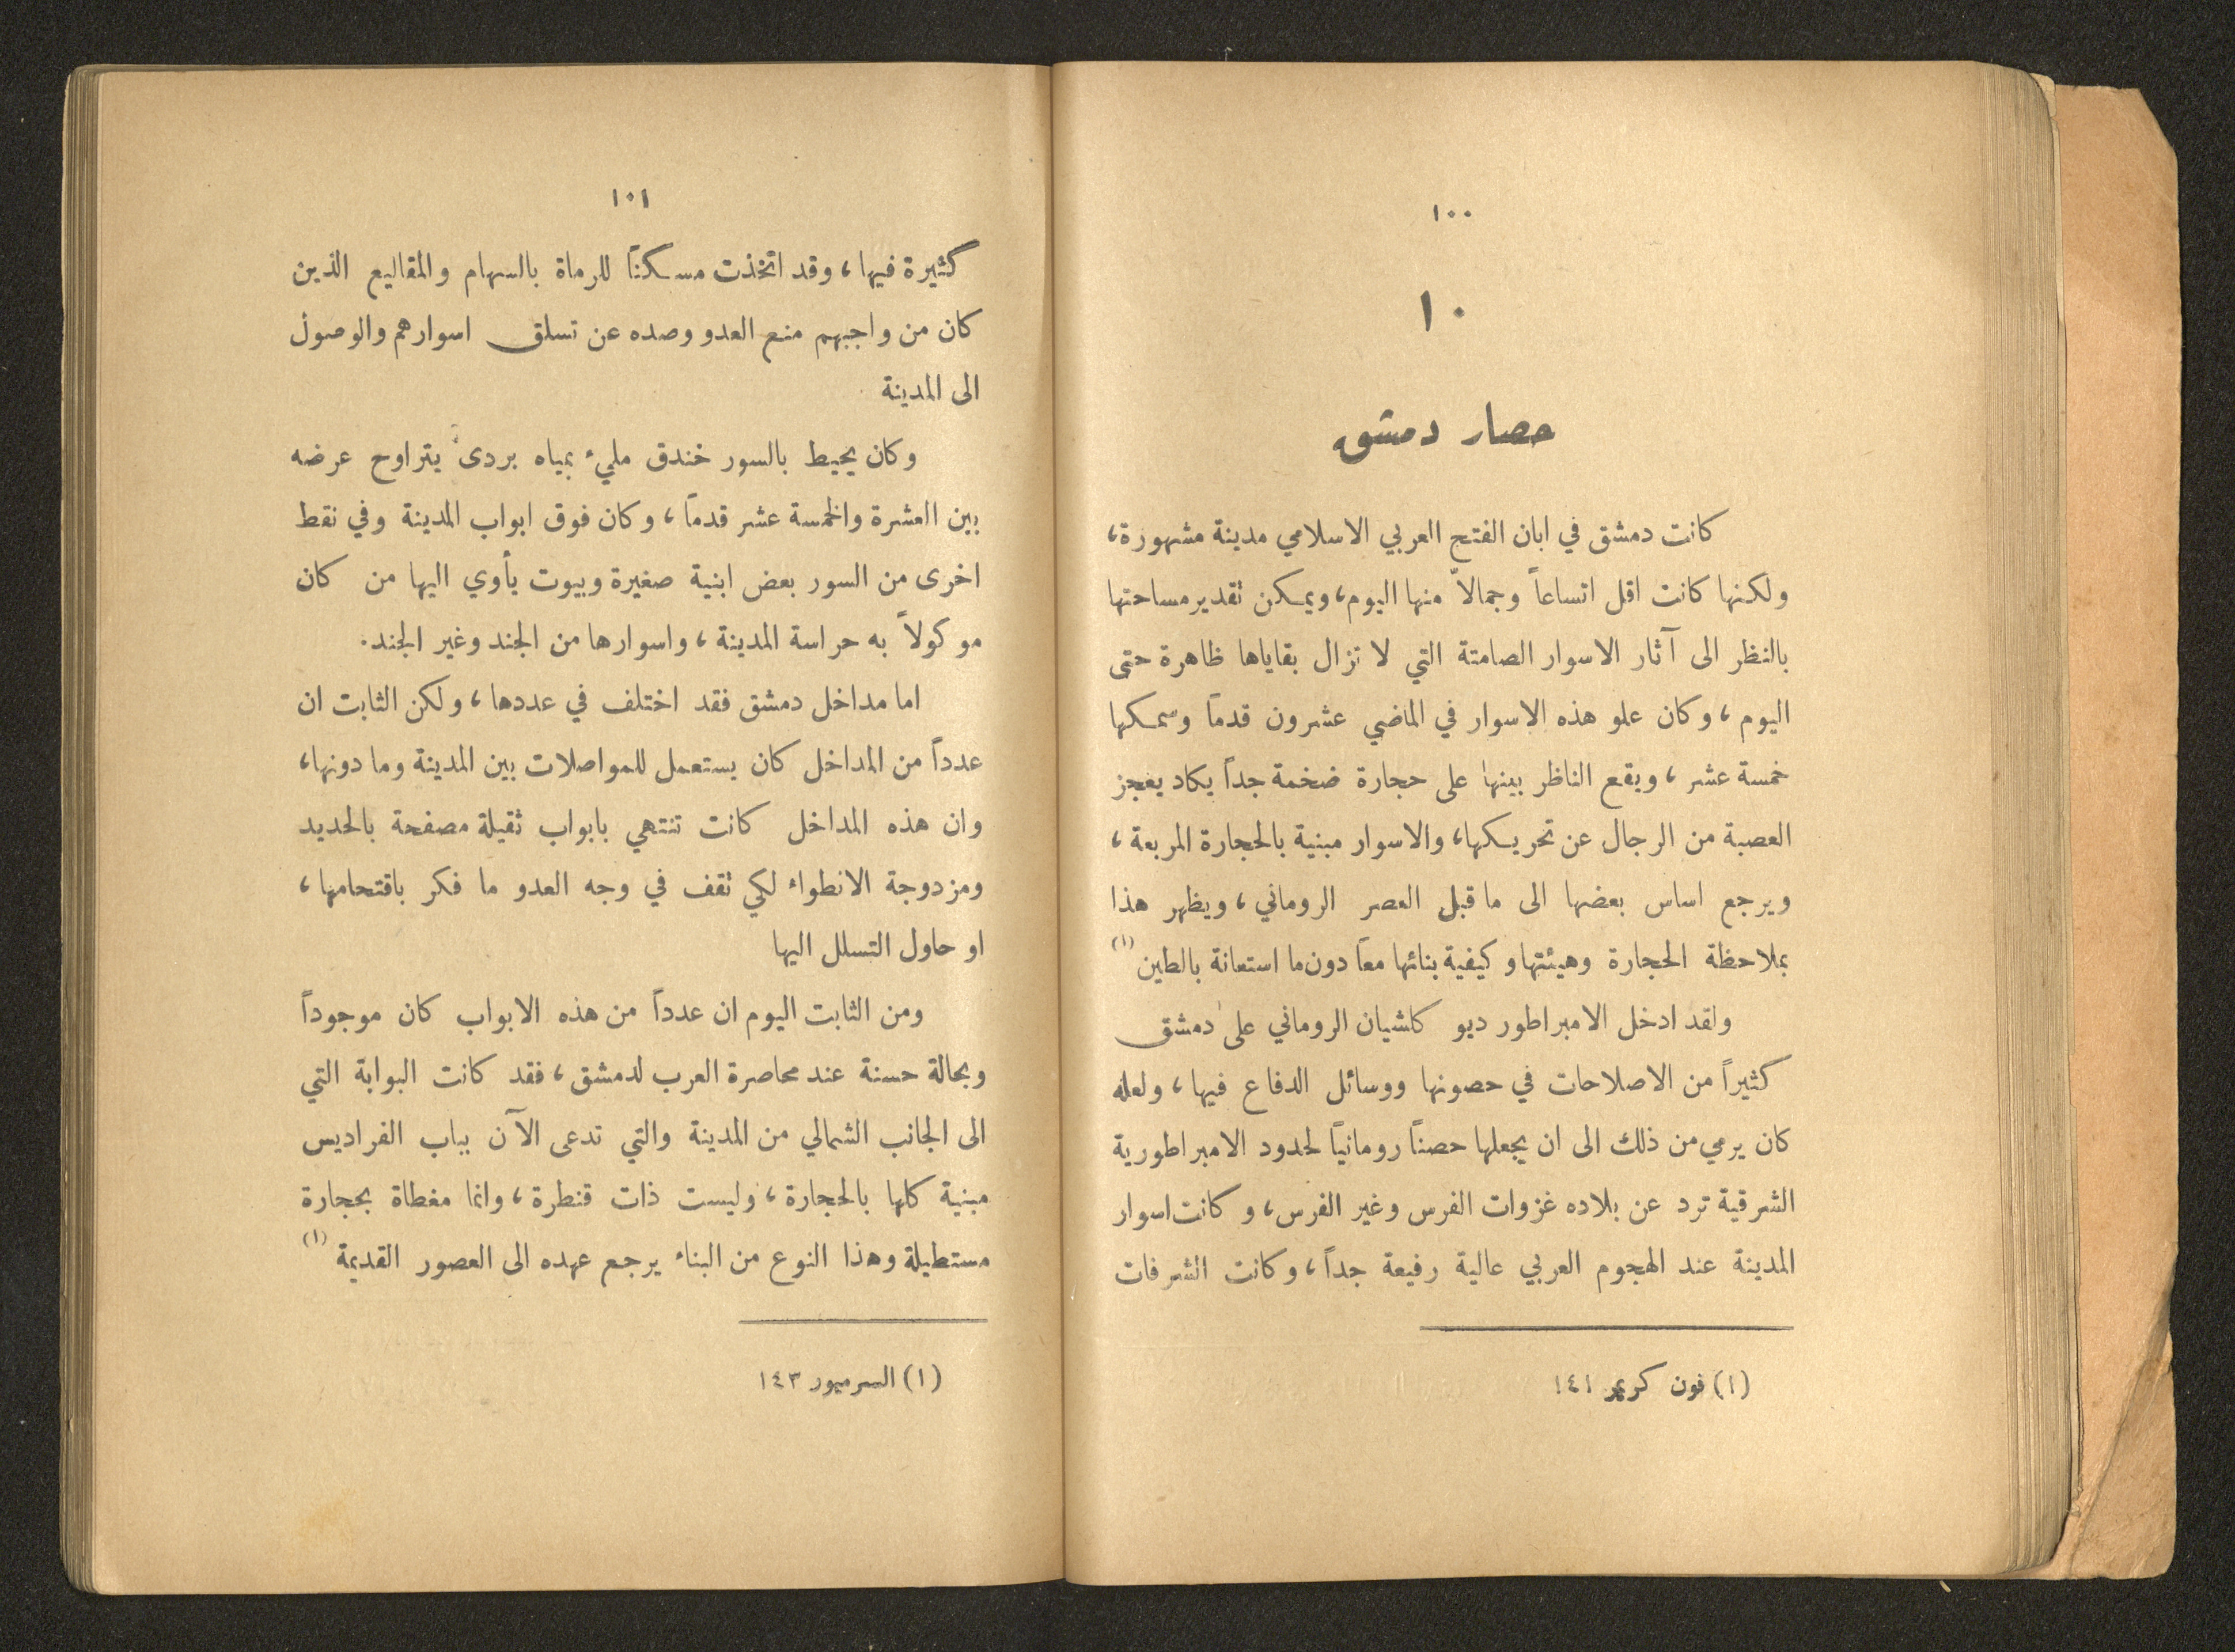 ١٠٠
١٠
حصار دمشق
كانت دمشق في ابان الفتح العربي الاسلامي مدينة مشهورة،
ولكنها كانت اقل اتساعاً وجمالاً منها اليوم، ويمكن تقدير مساحتها
بالنظر الى آثار الاسوار الصامتة التي لا تزال بقاياها ظاهرة حتى
اليوم، وكان علو هذه الاسوار في الماضي عشرون قدماً وسمكها
خمسة عشر، ويقع الناظر بينها على حجارة ضخمة جداً يكاد يعجز
العصبة من الرجال عن تحريكها، والاسوار مبنية بالحجارة المربعة،
ويرجع اساس بعضها الى ما قبل العصر الروماني، ويظهر هذا
بملاحظة الحجارة وهيئتها وكيفية بنائها معاً دون ما استعانة بالطين (١)
ولقد ادخل الامبراطور ديو كلشيان الروماني على دمشق
كثيراً من الاصلاحات في حصونها ووسائل الدفاع فيها، ولعله
كان يرمي من ذلك الى ان يجعلها حصناً رومانياً لحدود الامبراطورية
الشرقية ترد عن بلاده غزوات الفرس وغير الفرس، وكانت اسوار
المدينة عند الهجوم العربي عالية رفيعة جداً، وكانت الشرفات
(١) فون كريمر ١٤١
١٠١
كثيرة فيها، وقد اتخذت مسكناً للرماة بالسهام والمقاليع الذين
كان من واجبهم منع العدو وصده عن تسلق اسوارهم والوصول
الى المدينة
وكان يحيط بالسور خندق مليء بمياه بردى يتراوح عرضه
بين العشرة والخمسة عشر قدماً، وكان فوق ابواب المدينة وفي نقط
اخرى من السور بعض ابنية صغيرة وبيوت يأوي اليها من كان
موكولاً به حراسة المدينة، واسوارها من الجند وغير الجند.
اما مداخل دمشق فقد اختلف في عددها، ولكن الثابت ان
عدداً من المداخل كان يستعمل للمواصلات بين المدينة وما دونها،
وان هذه المداخل كانت تنتهي بابواب ثقيلة مصفحة بالحديد
ومزدوجة الانطواء لكي تقف في وجه العدو ما فكر باقتحامها،
او حاول التسلل اليها
ومن الثابت اليوم ان عدداً من هذه الابواب كان موجوداً
وبحالة حسنة عند محاصرة العرب لدمشق، فقد كانت البوابة التي
الى الجانب الشمالي من المدينة والتي تدعى الآن بباب الفراديس
مبنية كلها بالحجارة، وليست ذات قنطرة، وانما مغطاة بحجارة
مستطيلة وهذا النوع من البناء يرجع عهده الى العصور القديمة (١)
(١) السرميور ١٤٣